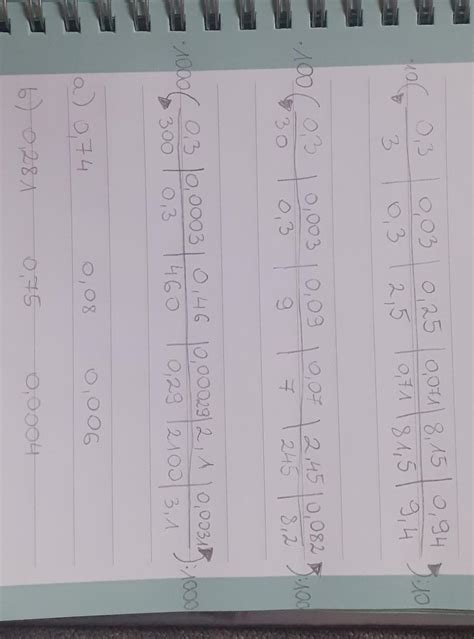 ·10 ( 0,3 | 0,03 | 0,25 | 0,071 | 8,15 | 0,94 ) :10
3 | 0,3 | 2,5 | 0,71 | 81,5 | 9,4
·100 ( 0,3 | 0,003 | 0,09 | 0,07 | 2,45 | 0,082 ) :100
30 | 0,3 | 9 | 7 | 245 | 8,2
·1000 ( 0,3 | 0,0003 | 0,46 | 0,00029 | 2,1 | 0,0031 ) :1000
300 | 0,3 | 460 | 0,29 | 2100 | 3,1
a.) 0,74 0,08 0,006
b) 0,281 0,75 0,0004